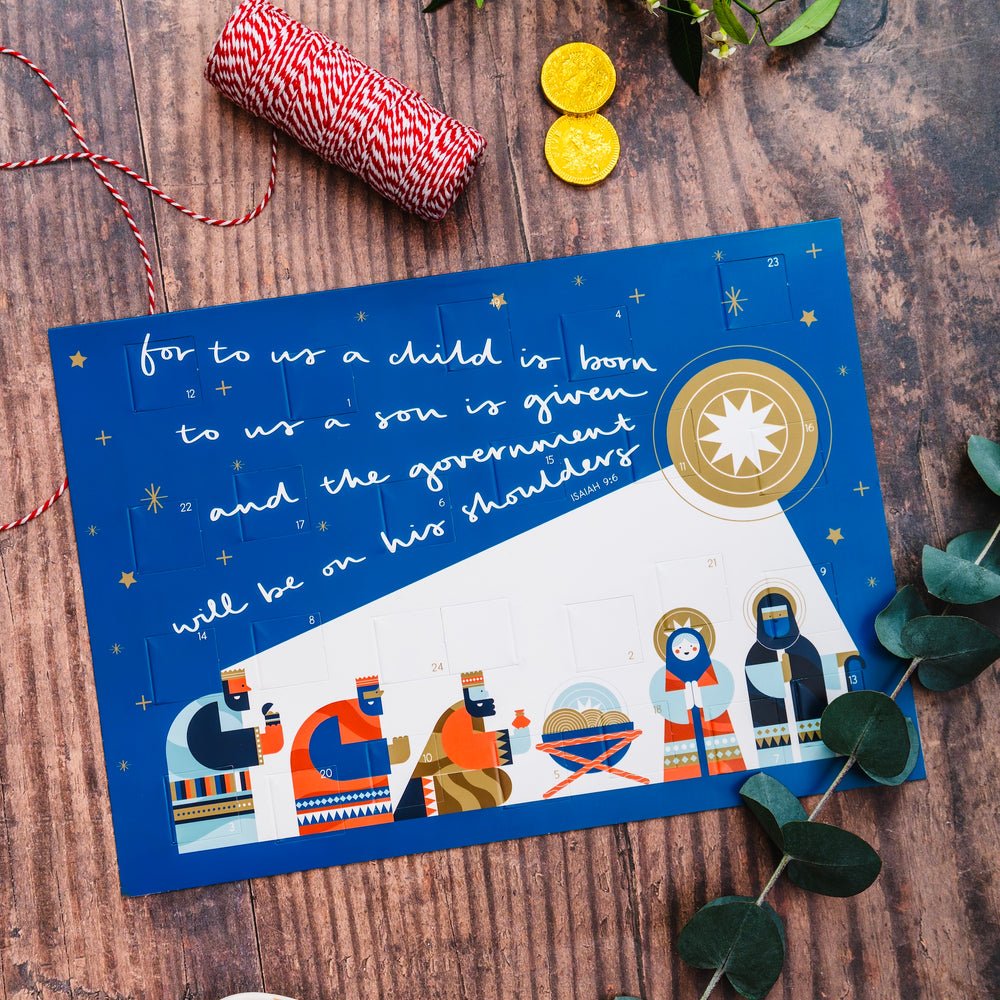 23
19
4
for to us a child is born
12
1
to us a son is given
16
and the government
15
11
22
17
6
will be on his shoulders
ISAIAH 9:6
21
9
14
8
24
2
13
18
10
20
5
7
3